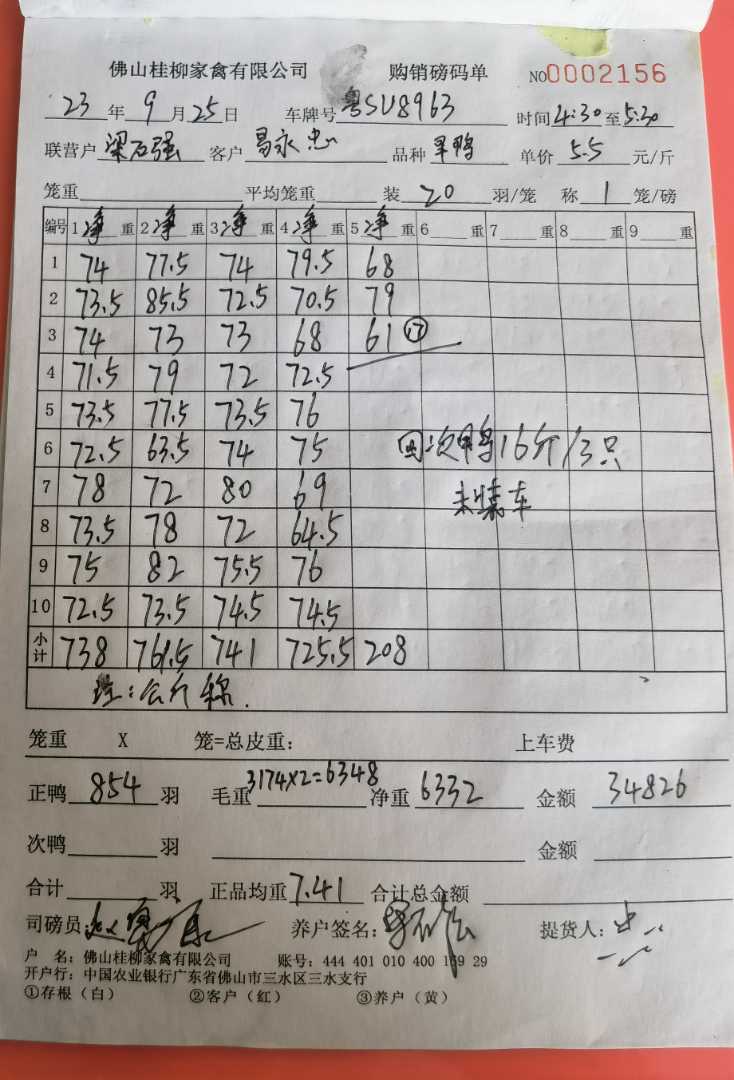 佛山桂柳家禽有限公司 购销磅码单 NO0002156
23年9月25日 车牌号粤SU8963 时间4:30至5:30
联营户梁石强 客户易永忠 品种旱鸭 单价5.5元/斤
笼重 平均笼重 装20羽/笼 称1笼/磅
编号 1净重 2净重 3净重 4净重 5净重 6重 7重 8重 9重
1 74 77.5 74 79.5 68
2 73.5 85.5 72.5 70.5 79
3 74 73 73 68 61⑰
4 71.5 79 72 72.5
5 73.5 77.5 73.5 76
6 72.5 63.5 74 75 回次鸭16斤/3只
7 78 72 80 69 未装车
8 73.5 78 72 64.5
9 75 82 75.5 76
10 72.5 73.5 74.5 74.5
小计 738 761.5 741 725.5 208
注:公斤称.
笼重 X 笼=总皮重: 上车费
正鸭854羽 毛重3174×2=6348 净重6332 金额34826
次鸭 羽 金额
合计 羽 正品均重7.41 合计总金额
司磅员: 养户签名: 提货人:忠
户 名:佛山桂柳家禽有限公司 账号:444 401 010 400 159 29
开户行:中国农业银行广东省佛山市三水区三水支行
①存根(白) ②客户(红) ③养户(黄)